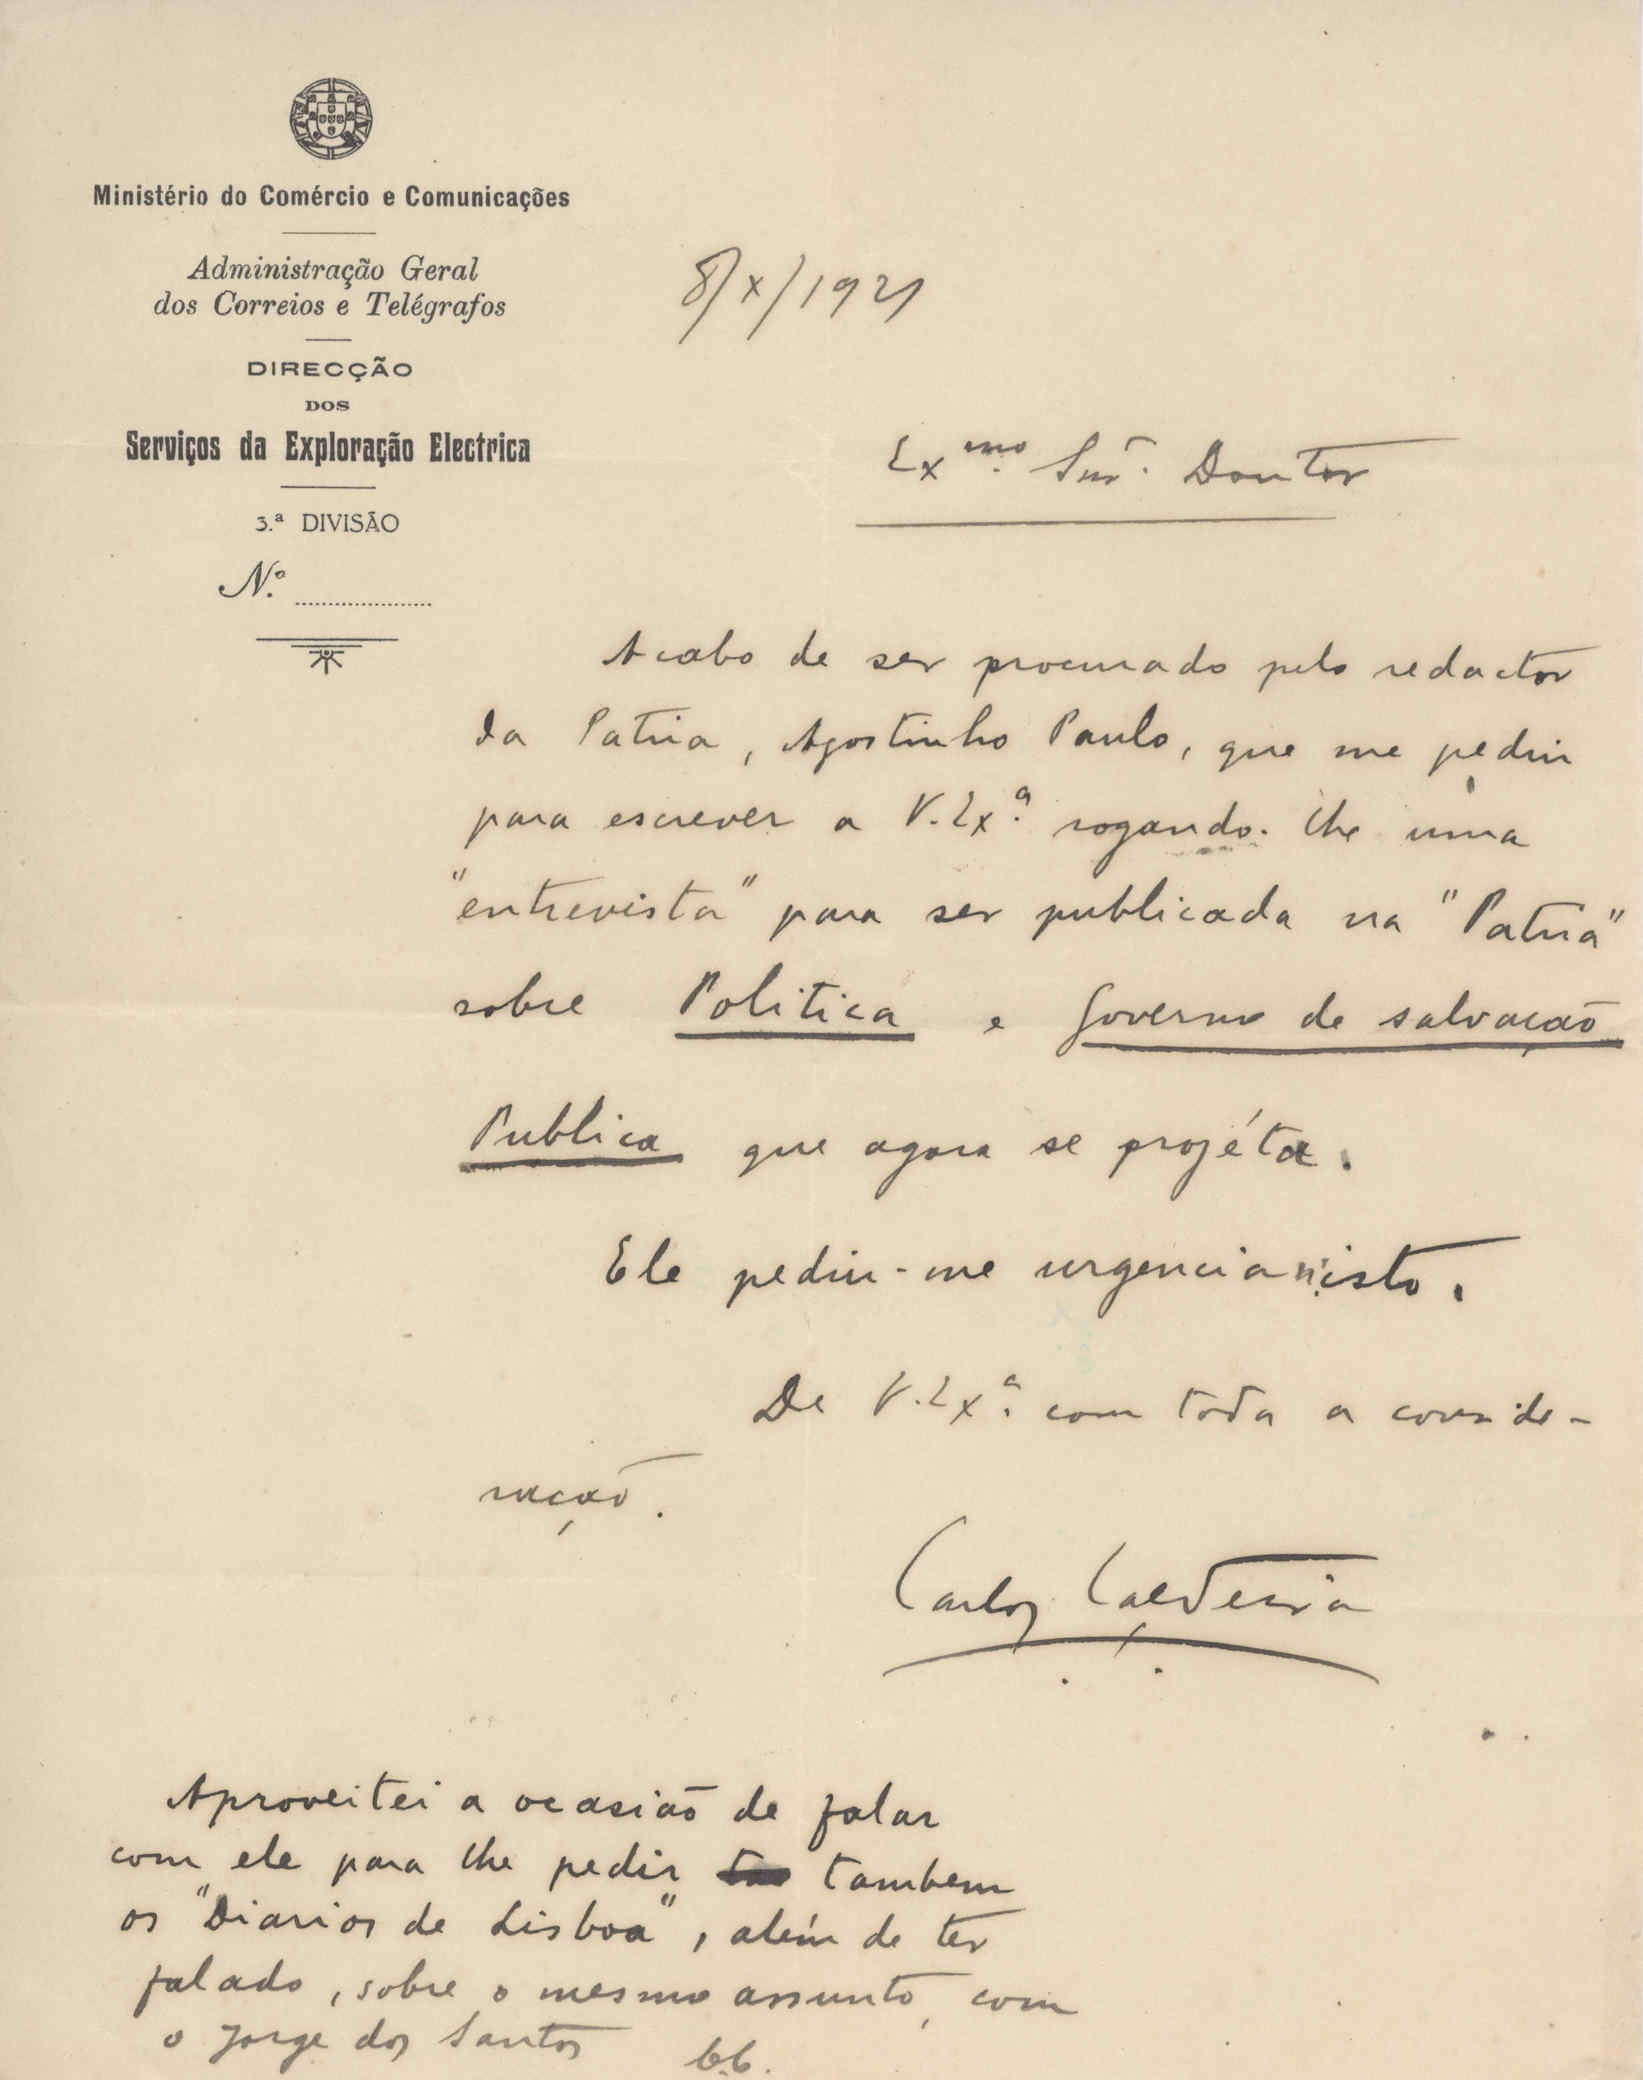 Ministério do Comércio e Comunicações
Administração Geral
dos Correios e Telégrafos
DIRECÇÃO
DOS
Serviços da Exploração Electrica
3.ª DIVISÃO
N.º
8/X/1921
Exmo. Snr. Doutor
Acabo de ser procurado pelo redactor
da Patria, Agostinho Paulo, que me pediu
para escrever a V. Exª. rogando-lhe uma
"entrevista" para ser publicada na "Patria"
sobre Politica e Governo de salvação
Publica que agora se projéta.
Ele pediu-me urgencia n'isto.
De V. Exª. com toda a conside-
ração.
Carlos Caldeira
Aproveitei a ocasião de falar
com ele para lhe pedir tambem
os "Diarios de Lisboa", além de ter
falado, sobre o mesmo assunto, com
o Jorge dos Santos